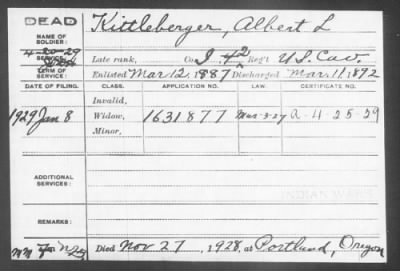 DEAD
NAME OF SOLDIER: Kittleberger, Albert L
4-20-29
SERVICE: Late rank, Co I, 4 2 Reg't U.S. Cav.
TERM OF SERVICE: Enlisted Mar 12, 1887 Discharged Mar. 11, 1892
DATE OF FILING. CLASS. APPLICATION NO. LAW. CERTIFICATE NO.
Invalid,
1929 Jan 8 Widow, 1631877 Mar-3-27 A-4-25-29
Minor,
ADDITIONAL SERVICES:
REMARKS:
Died Nov 27, 1928, at Portland, Oregon